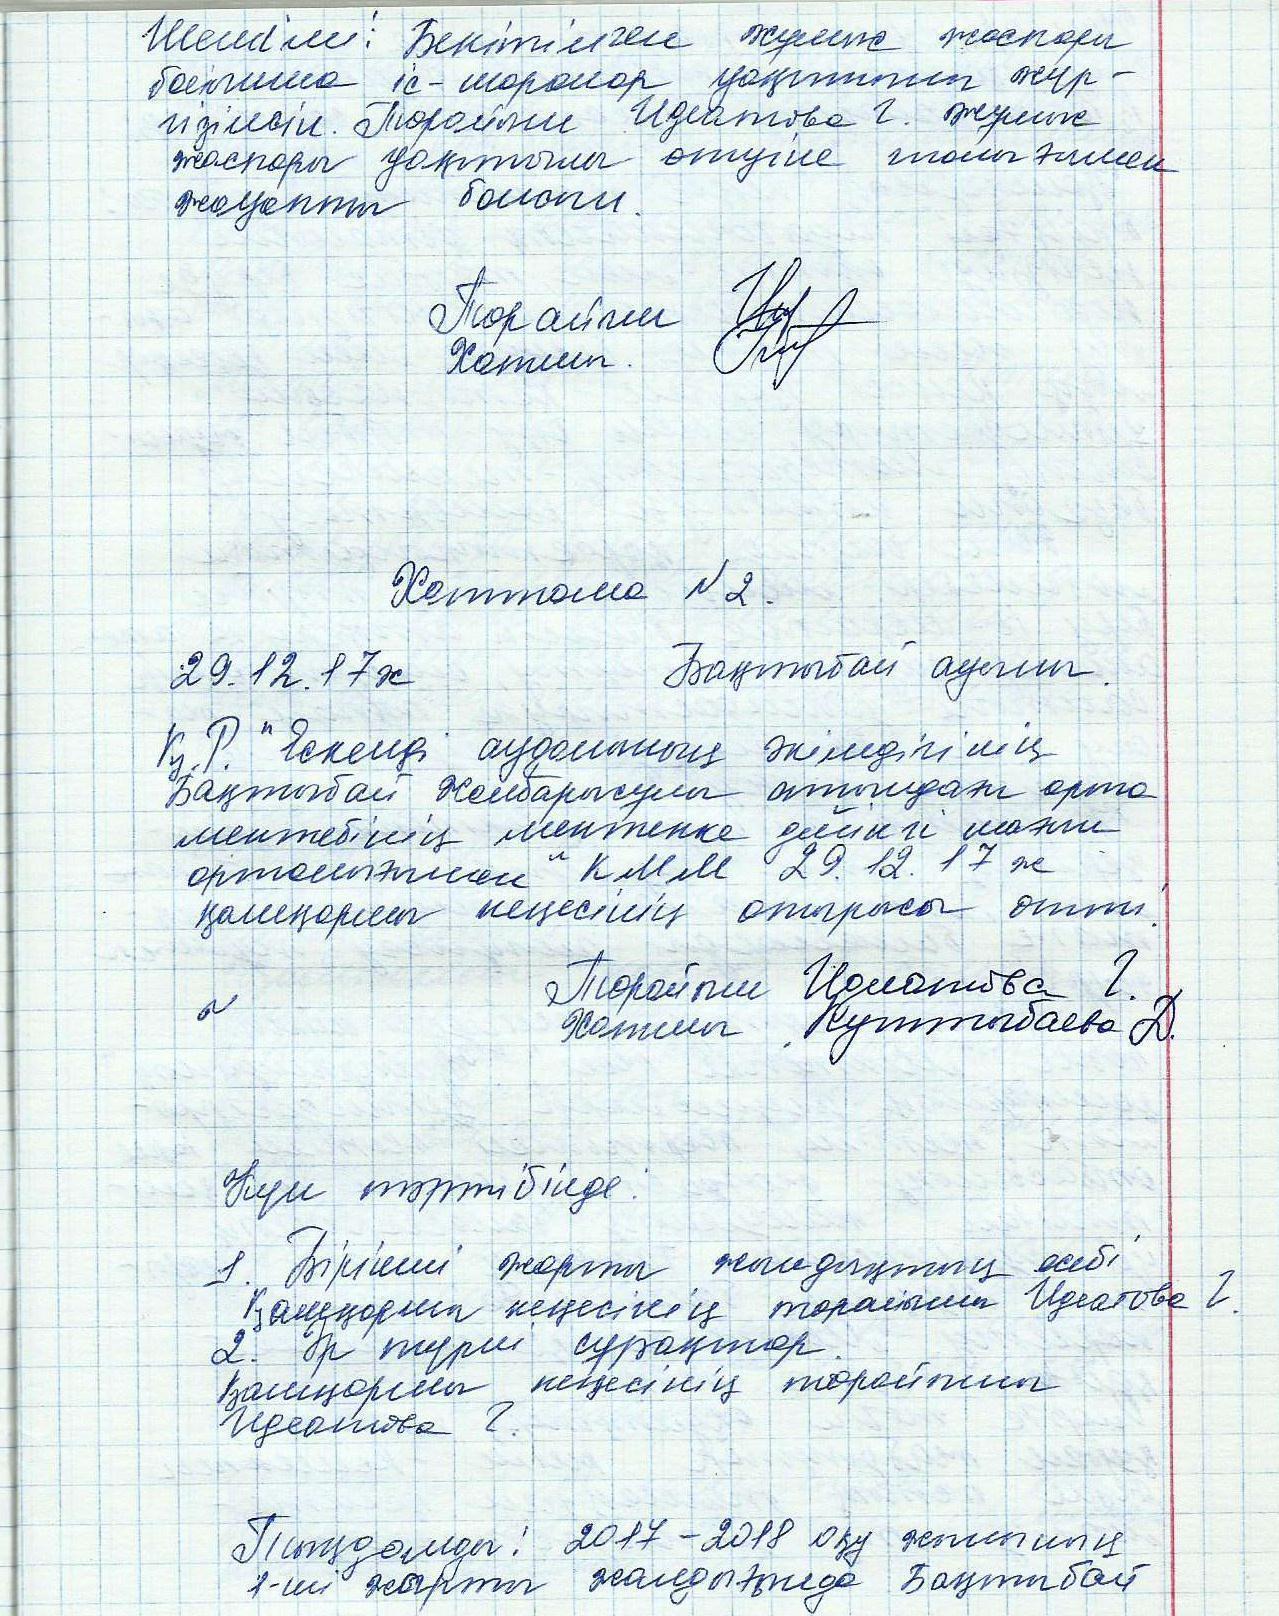 Шешімі: Бекітілген жұмыс жоспары
бойынша іс-шаралар уақытылы жүр-
гізілсін. Төрайымы Идиатова Г. жұмыс
жоспары уақытылы өтуіне толығымен
жауапты болсын.
Төрайымы
Хатшы.
Хаттама №2.
29.12.17ж Бақтыбай ауылы.
Қ.Р. "Ескелді ауданының әкімдігінің
Бақтыбай Жолбарысұлы атындағы орта
мектебінің мектепке дейінгі шағын
орталығымен" КММ 29.12.17 ж
қамқоршы кеңесінің отырысы өтті.
Төрайымы Идиатова Г.
Хатшы Құттыбаева Д.
Күн тәртібінде:
1. Бірінші жарты жылдықтың есебі
Қамқоршы кеңесінің төрайымы Идиатова Г.
2. Әр түрлі сұрақтар.
Қамқоршы кеңесінің төрайымы
Идиатова Г.
Тыңдалды: 2017-2018 оқу жылының
1-ші жарты жылдығында Бақтыбай